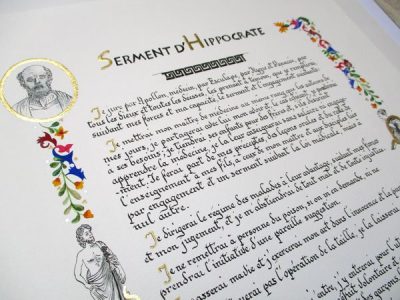 SERMENT D'HIPPOCRATE
Je jure par Apollon, médecin, par Esculape, par Hygie et Panacée, par
tous les dieux et toutes les déesses, les prenant à témoin que je remplirai,
suivant mes forces et ma capacité, le serment et l'engagement suivants:
Je mettrai mon maître de médecine au même rang que les auteurs de
mes jours, je partagerai avec lui mon avoir et, le cas échéant, je pourvoirai
à ses besoins; je tiendrai ses enfants pour des frères et, s'ils désirent
apprendre la médecine, je la leur enseignerai sans salaire ni engage-
ment. Je ferai part de mes préceptes, des leçons orales et du reste de
l'enseignement à mes fils, à ceux de mon maître et aux disciples liés
par engagement et un serment suivant la loi médicale, mais à
nul autre.
Je dirigerai le régime des malades à leur avantage, suivant mes forces
et mon jugement, et je m'abstiendrai de tout mal et de toute injustice.
Je ne remettrai à personne du poison, si on m'en demande, ni ne
prendrai l'initiative d'une pareille suggestion.
passerai ma vie et j'exercerai mon art dans l'innocence et la
pas l'opération de la taille, je la laisserai
entre, j'y entrerai pour